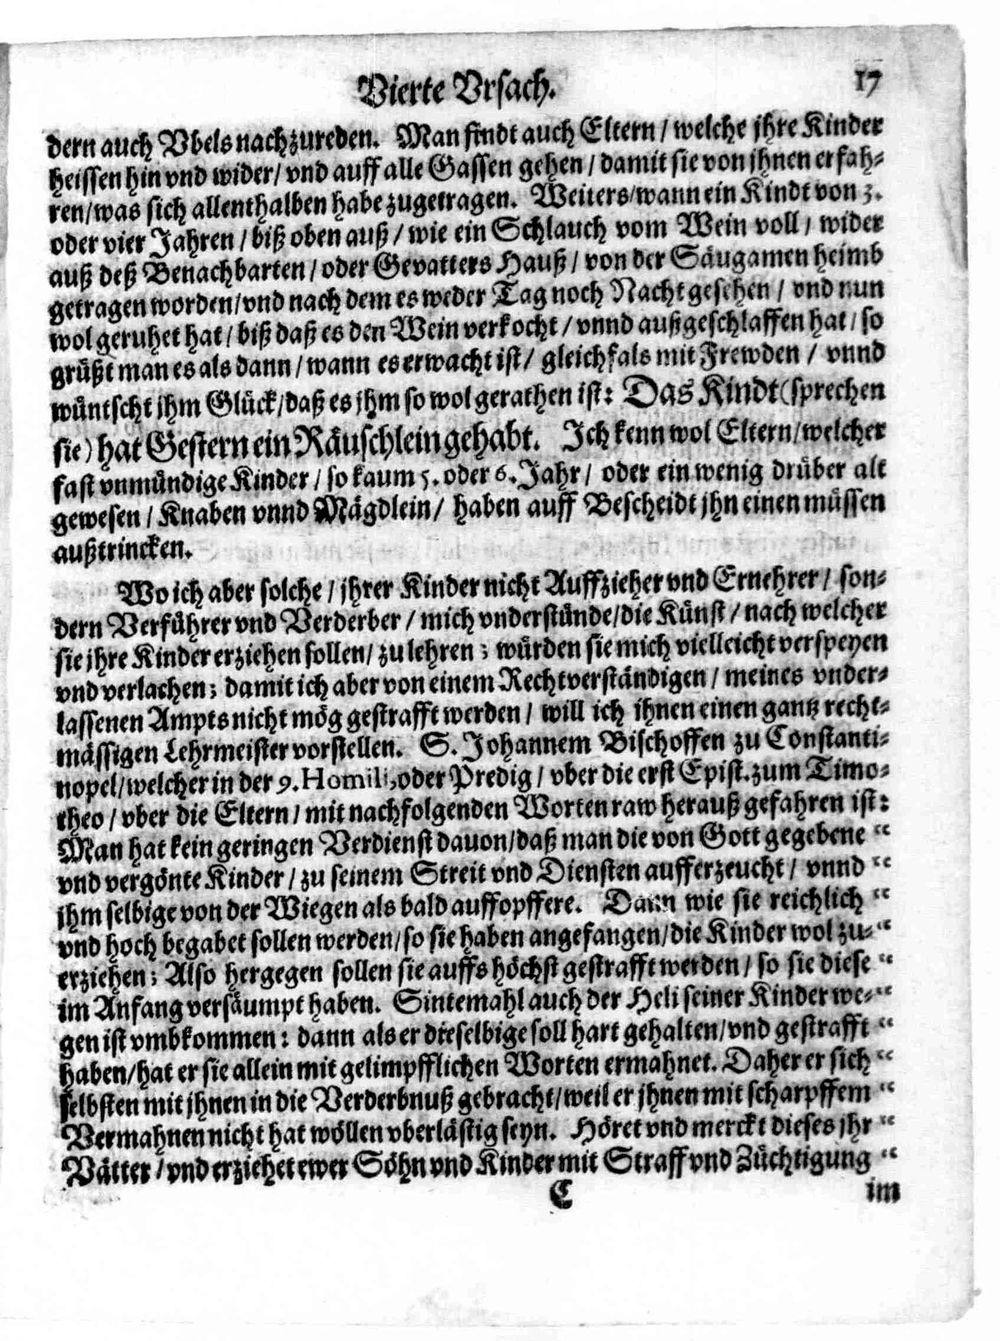 Vierte Vrsach. 17
dern auch Vbels nachzureden. Man findt auch Eltern / welche jhre Kinder
heissen hin vnd wider/ vnd auff alle Gassen gehen / damit sie von jhnen erfah-
ren/was sich allenthalben habe zugetragen. Weiters/wann ein Kindt von 3.
oder vier Jahren / biß oben auß / wie ein Schlauch vom Wein voll / wider
auß deß Benachbarten / oder Gevatters Hauß / von der Säugamen heimb
getragen worden/vnd nach dem es weder Tag noch Nacht gesehen / vnd nun
wol geruhet hat / biß daß es den Wein verkocht / vnnd außgeschlaffen hat / so
grüßt man es als dann / wann es erwacht ist / gleichfals mit Frewden / vnnd
wüntscht jhm Glück/daß es jhm so wol gerathen ist: Das Kindt (sprechen
sie) hat Gestern ein Räuschlein gehabt. Ich kenn wol Eltern/welcher
fast vnmündige Kinder / so kaum 5. oder 6. Jahr / oder ein wenig drüber alt
gewesen / Knaben vnnd Mägdlein / haben auff Bescheidt jhn einen müssen
außtrincken.
Wo ich aber solche / jhrer Kinder nicht Auffzieher vnd Ernehrer / son-
dern Verführer vnd Verderber / mich vnderstünde/die Künst / nach welcher
sie jhre Kinder erziehen sollen/ zu lehren ; würden sie mich vielleicht verspeyen
vnd verlachen ; damit ich aber von einem Rechtverständigen / meines vnder-
lassenen Ampts nicht mög gestrafft werden / will ich ihnen einen gantz recht-
mässigen Lehrmeister vorstellen. S. Johannem Bischoffen zu Constanti-
nopel/welcher in der 9. Homili, oder Predig / vber die erst Epist. zum Timo-
theo / vber die Eltern / mit nachfolgenden Worten raw herauß gefahren ist:
Man hat kein geringen Verdienst dauon/daß man die von Gott gegebene “
vnd vergönte Kinder / zu seinem Streit vnd Diensten aufferzeucht / vnnd “
jhm selbige von der Wiegen als bald auffopffere. Dann wie sie reichlich “
vnd hoch begabet sollen werden/so sie haben angefangen/die Kinder wol zu- “
erziehen ; Also hergegen sollen sie auffs höchst gestrafft werden / so sie diese “
im Anfang versäumpt haben. Sintemahl auch der Heli seiner Kinder we- “
gen ist vmbkommen : dann als er dieselbige soll hart gehalten/vnd gestrafft “
haben/hat er sie allein mit gelimpfflichen Worten ermahnet. Daher er sich “
selbsten mit jhnen in die Verderbnuß gebracht/weil er jhnen mit scharpffem “
Vermahnen nicht hat wöllen vberlästig seyn. Höret vnd merckt dieses jhr “
Vätter / vnd erziehet ewer Söhn vnd Kinder mit Straff vnd Züchtigung “
C im